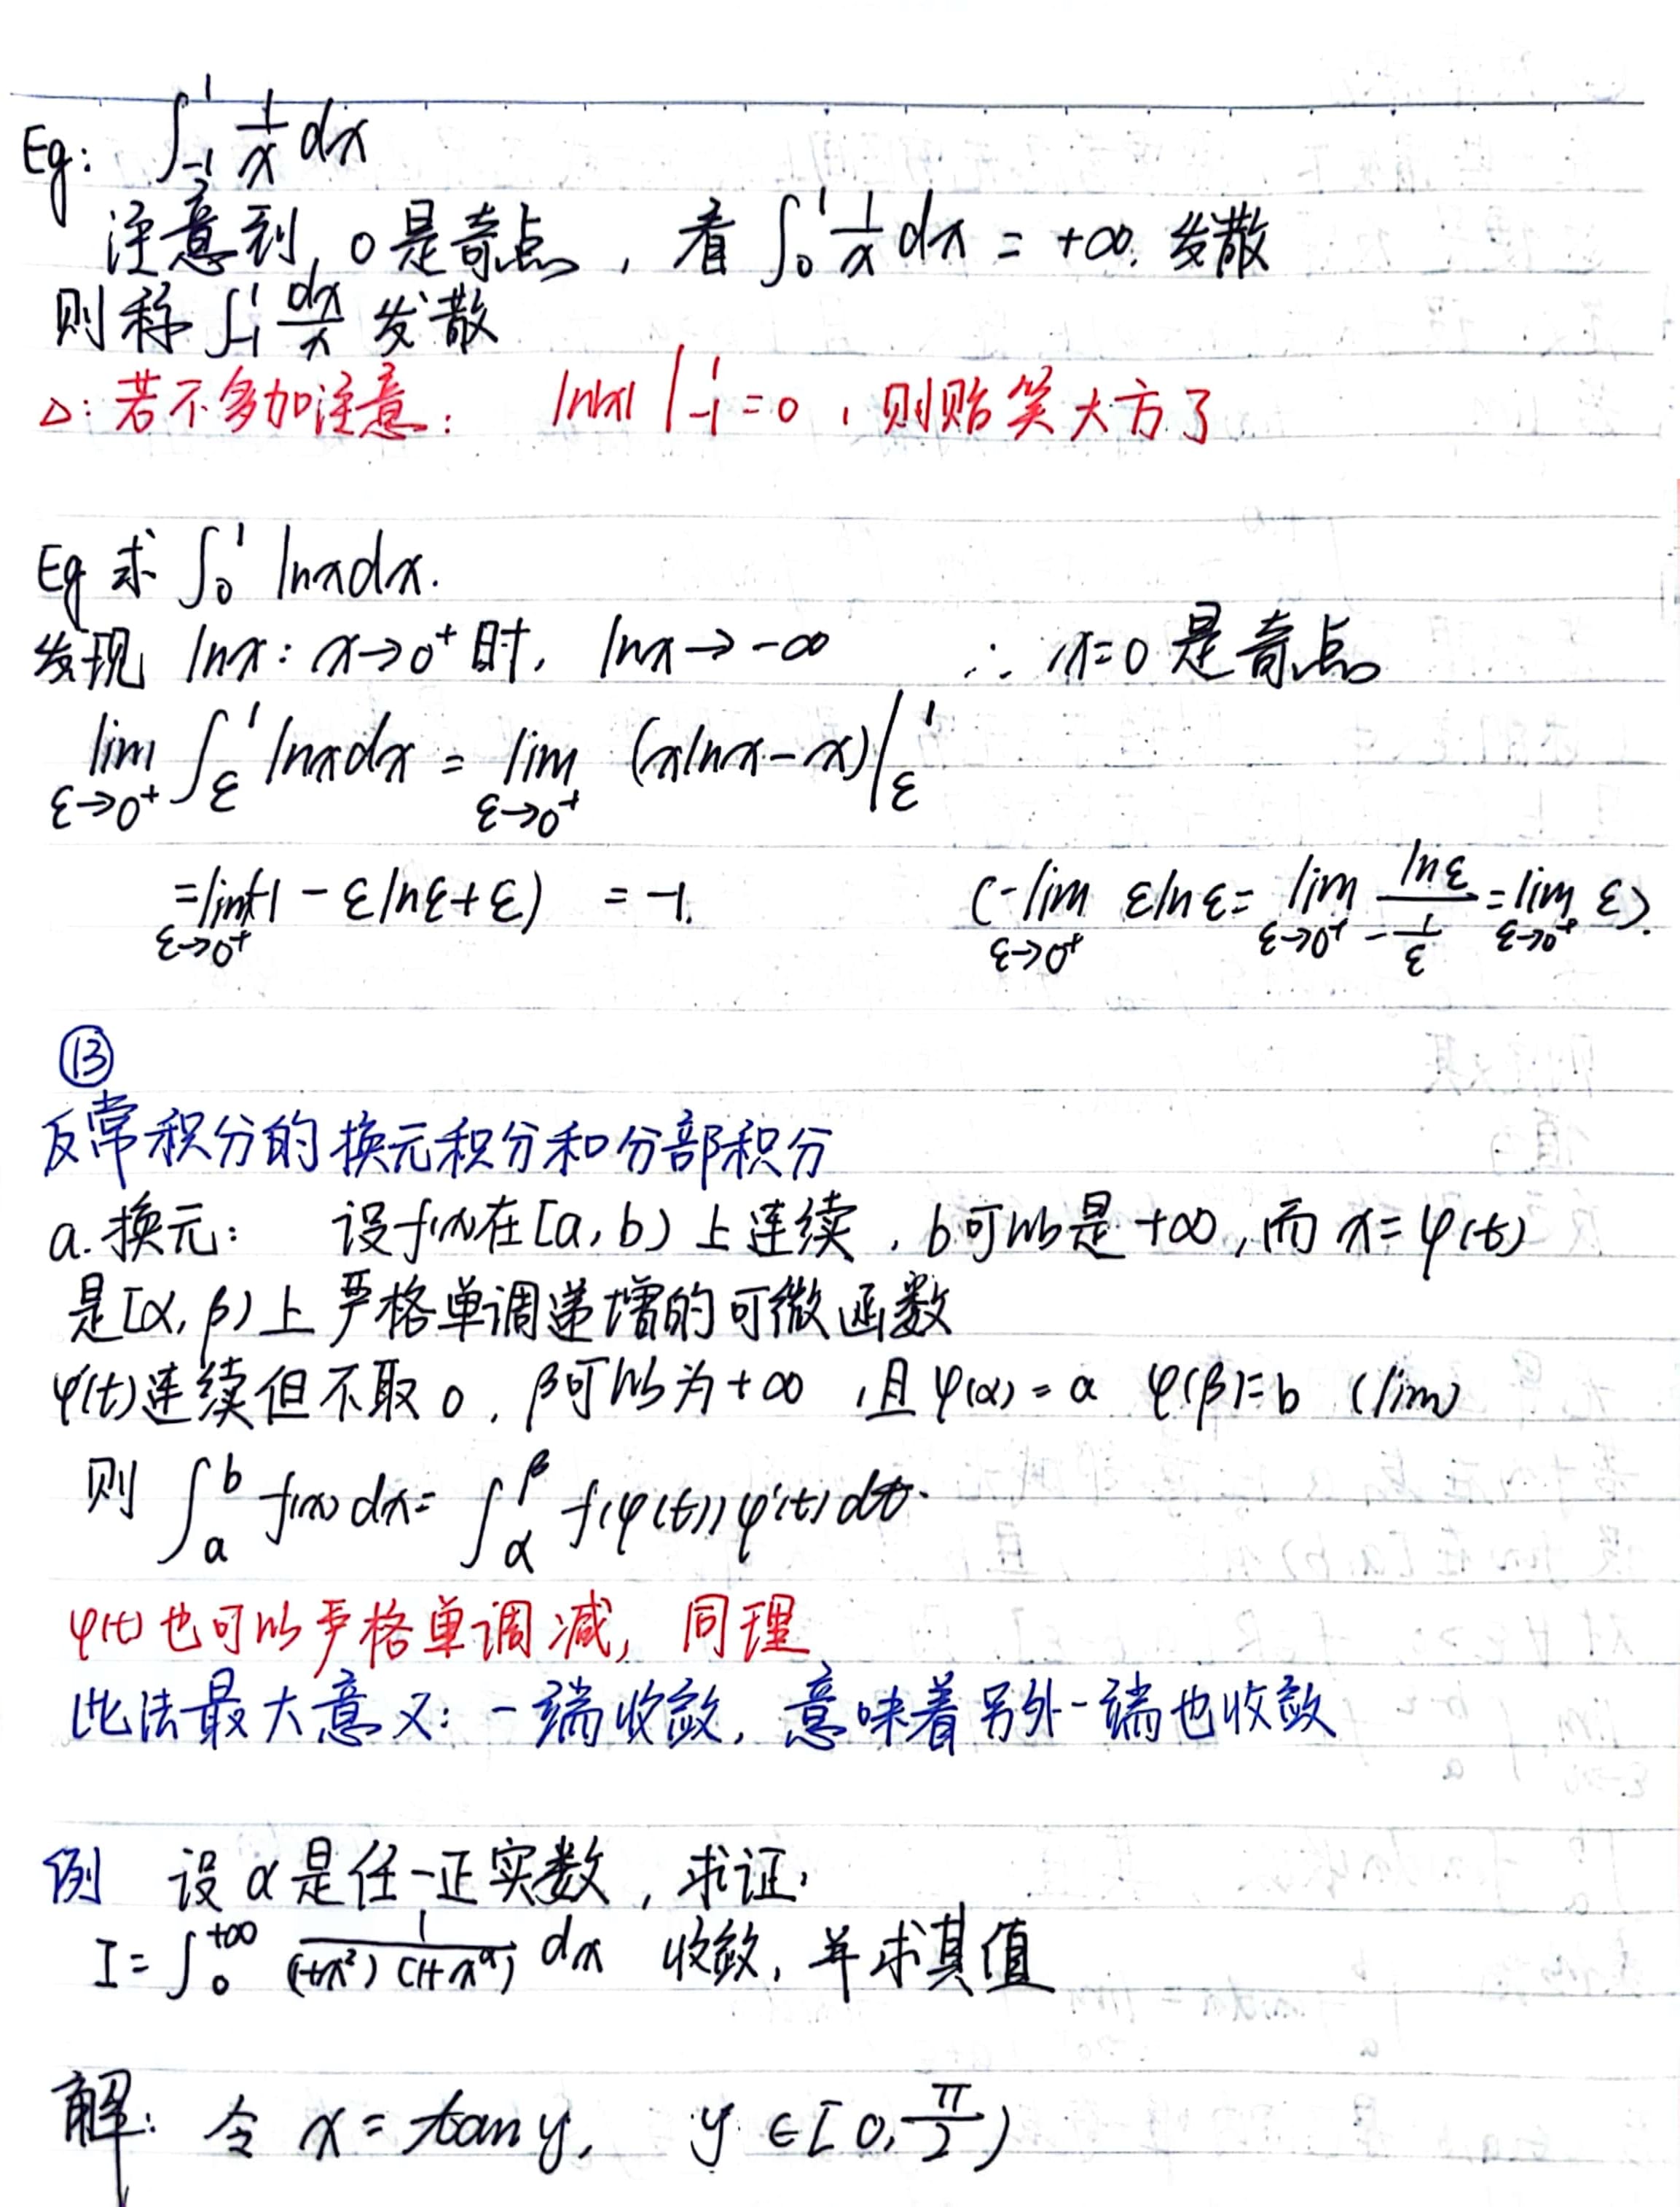 Eg: ∫_{-1}^{1} 1/x dx
注意到, 0是奇点, 看 ∫_0^1 1/x dx = +∞. 发散
则称 ∫_{-1}^1 dx/x 发散
△: 若不多加注意: ln|x| |_{-1}^1 = 0, 则贻笑大方了
Eg 求 ∫_0^1 lnxdx.
发现 lnx: x→0⁺时, lnx→-∞ ∴ x=0 是奇点
lim_{ε→0⁺} ∫_ε^1 lnxdx = lim_{ε→0⁺} (xlnx-x)|_ε^1
=lim_{ε→0⁺}(-1 - εlnε+ε) = -1. (-lim_{ε→0⁺} εlnε= lim_{ε→0⁺} lnε/(-1/ε) =lim_{ε→0⁺} ε).
⑬
反常积分的换元积分和分部积分
a. 换元: 设f(x)在[a, b)上连续, b可以是+∞, 而 x=φ(t)
是[α, β)上严格单调递增的可微函数
φ'(t)连续但不取0, β可以为+∞, 且φ(α)=a φ(β)=b (lim)
则 ∫_a^b f(x)dx= ∫_α^β f(φ(t))φ'(t)dt.
φ(t)也可以严格单调减, 同理
此法最大意义: 一端收敛, 意味着另外一端也收敛
例 设α是任一正实数, 求证,
I=∫_0^{+∞} 1/((1+x²)(1+x^α)) dx 收敛, 并求其值
解: 令 x=tan y, y∈[0, π/2)